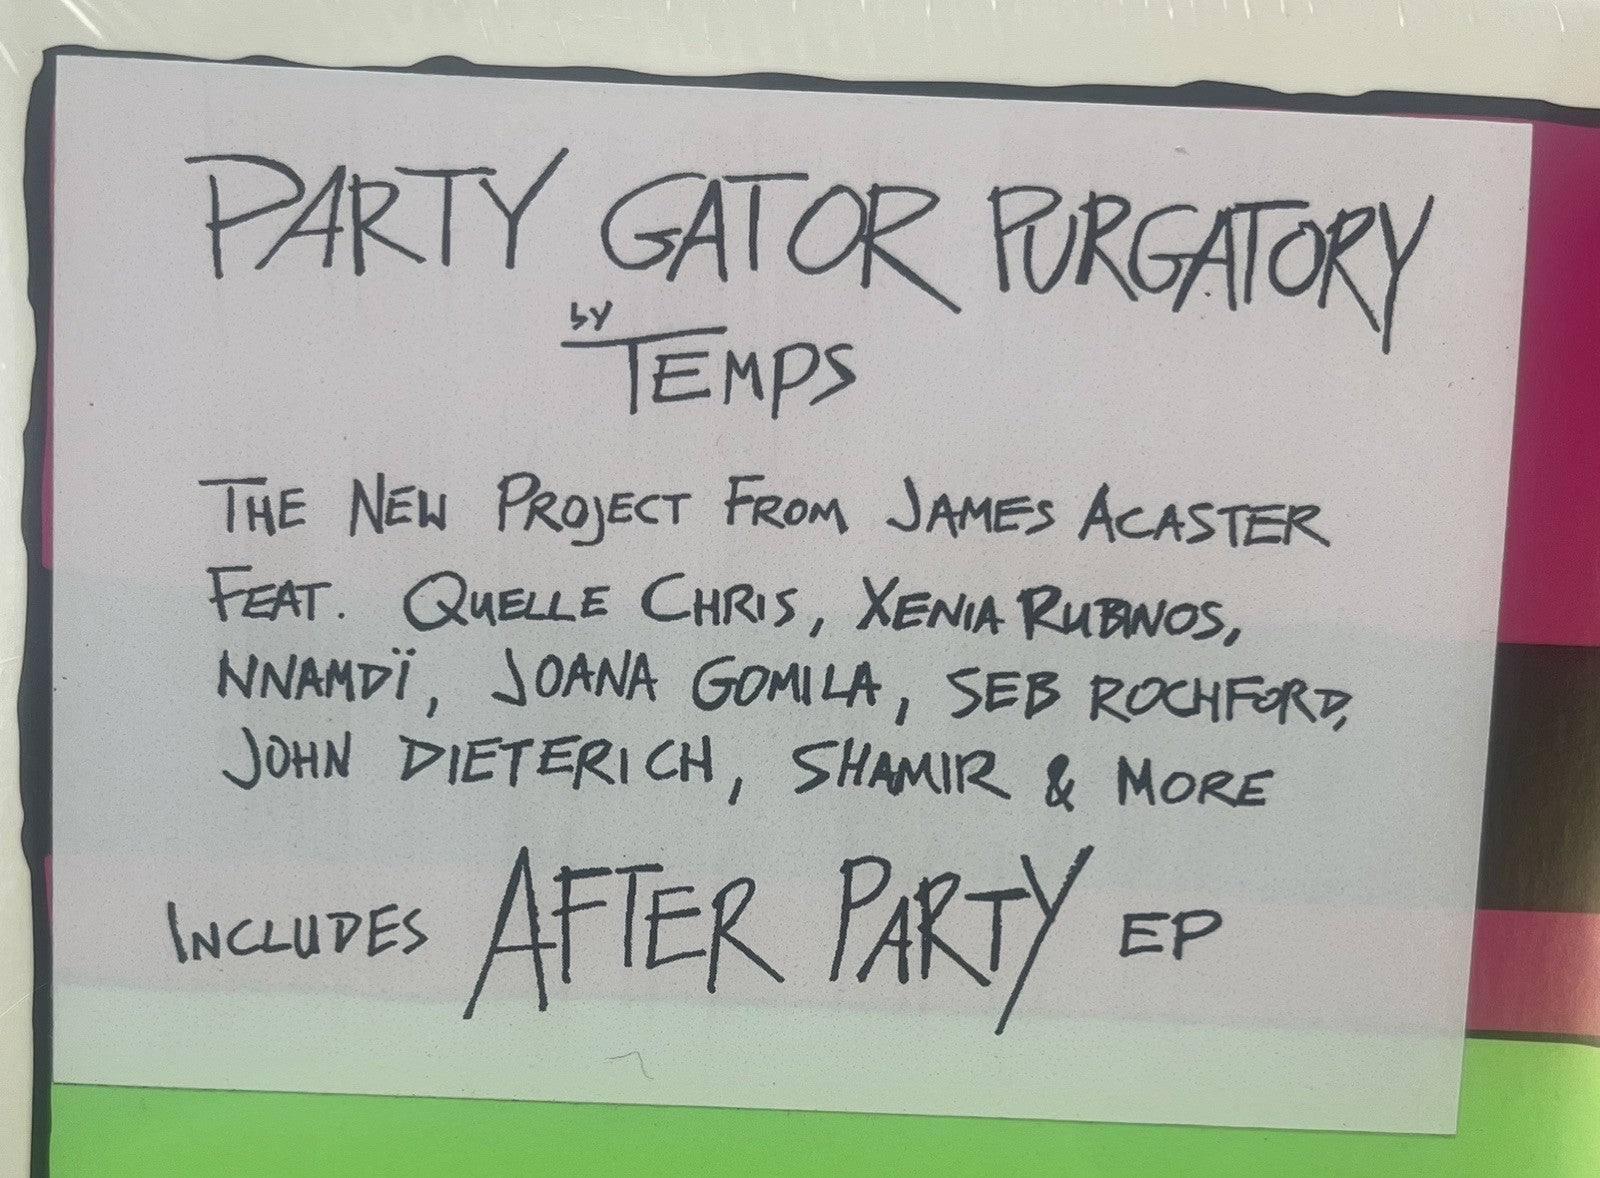 PARTY GATOR PURGATORY
by
TEMPS
THE NEW PROJECT FROM JAMES ACASTER
FEAT. QUELLE CHRIS, XENIA RUBINOS,
NNAMDÏ, JOANA GOMILA, SEB ROCHFORD,
JOHN DIETERICH, SHAMIR & MORE
INCLUDES AFTER PARTY EP